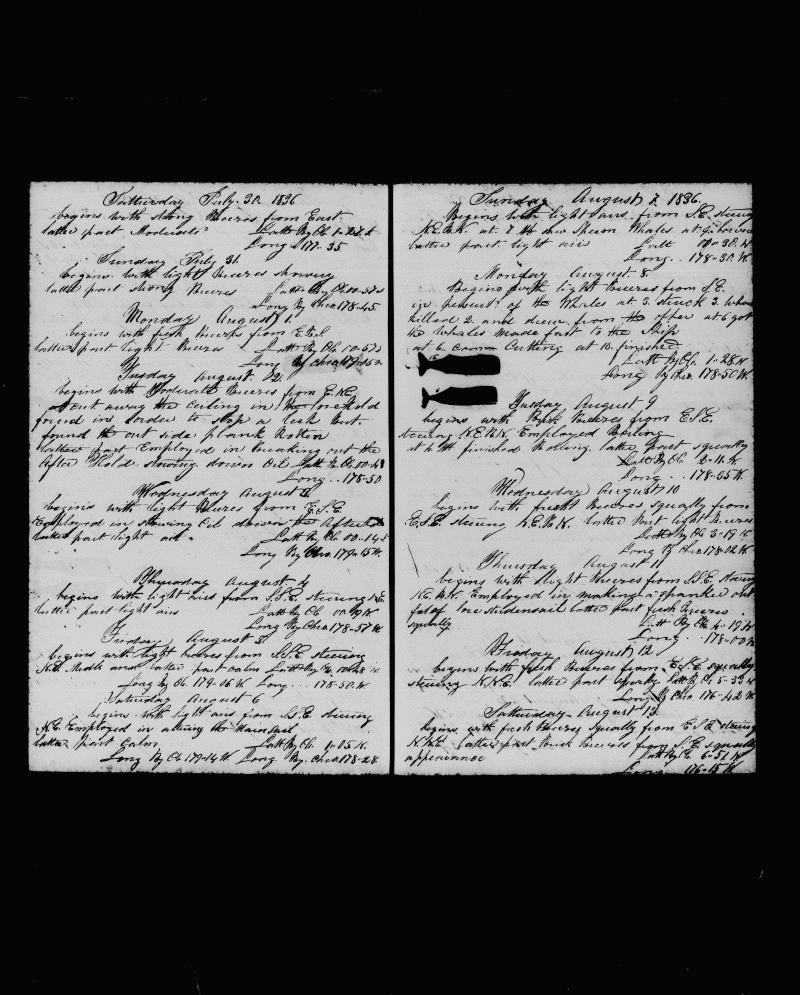 Satturday July. 30. 1836
begins with strong Breezes from East
latter part Moderate Latt By Ob
Long 177-35
Sunday July 31
begins with light Breezes showery
latter part strong Breezes Latt By Ob 00-57
Long By Chro 178-45
Monday August 1
begins with fresh breezes from E S E
latter part light Breezes Latt By Ob 00-57
Long By Chro
Tuesday August. 2
begins with Moderate Breezes from E.N.E.
cut away the Ceiling in the forehold
found in order to stop a leak but
found the out side plank Rotten
latter part Employed in breaking out the
After Hold stowing down Oil Latt By Ob 00-48
Long.. 178-50
Wednesday August 3
begins with light Breezes from E.S.E
Employed in stowing Oil down the After
latter part light air. Latt By Ob 00-14
Long By Chro 179-15 W.
Thursday August 4
begins with light airs from S.S.E. steering N.E.
latter part light airs Latt By Ob 00-19 N
Long By Chro 178-57 W
Friday August 5
begins with light breezes from S.S.E steering
N.E. Middle and latter part calm Latt By Ob 00-48 N.
Long By Ob 179-06 W Long.. 178-50. W.
Saturday August 6
begins with light airs from S.E. steering
N.E. Employed in altering the Mainsail
latter part Calm Latt By Ob. 1-05 N.
Long By Ob 179-14 W. Long By. Chro 178-28
Sunday August 7. 1836.
Begins with light airs from S.E. steering
N.E.b.N. at. 7 saw Sperm Whales at 9 lowered
latter part light airs Latt 00-30. N
Long.. 178-30. W.
Monday August. 8
Begins with light Breezes from S.E.
in persuit of the Whales at 3. struck 3. Whales
killed 2. and drew from the other at 6 got
the Whales made fast to the Ship
at 6. Comm Cutting at 10. finished
Latt By Ob. 1-28 N
Long By Chro. 178-50 W.
Tuesday August 9
begins with Brisk Breezes from E.S.E.
steering N.E.b.N. Employed Boiling
at 4 finished Boiling latter part squally
Latt By Ob. 2-11. N.
Long.. 178-05 W.
Wednesday August 10
begins with fresh Breezes squally from
E.S.E. steering N.E.b.N. latter Part light Breezes
Latt By Ob 3-19 N
Long By Chro 178-02 W
Thursday August 11
begins with light Breezes from S.E. Steering
N.E.b.N. Employed in making a spanker out
of one studdensail latter part fresh Breezes
squally. Latt By Ob 4-19 N
Long.. 178-00 W
Friday August 12
begins with fresh Breezes from E.S.E squally
steering N.N.E. latter part squally Latt By Ob 5-33 N
Long By Chro 176-42 W
Satturday August 13.
begins with fresh breezes squally from E.S.E steering
N.b.E. latter part Brisk Breezes from S.E. squally
appearance Latt By Ob 6-51 N
Long.. 176-15 W